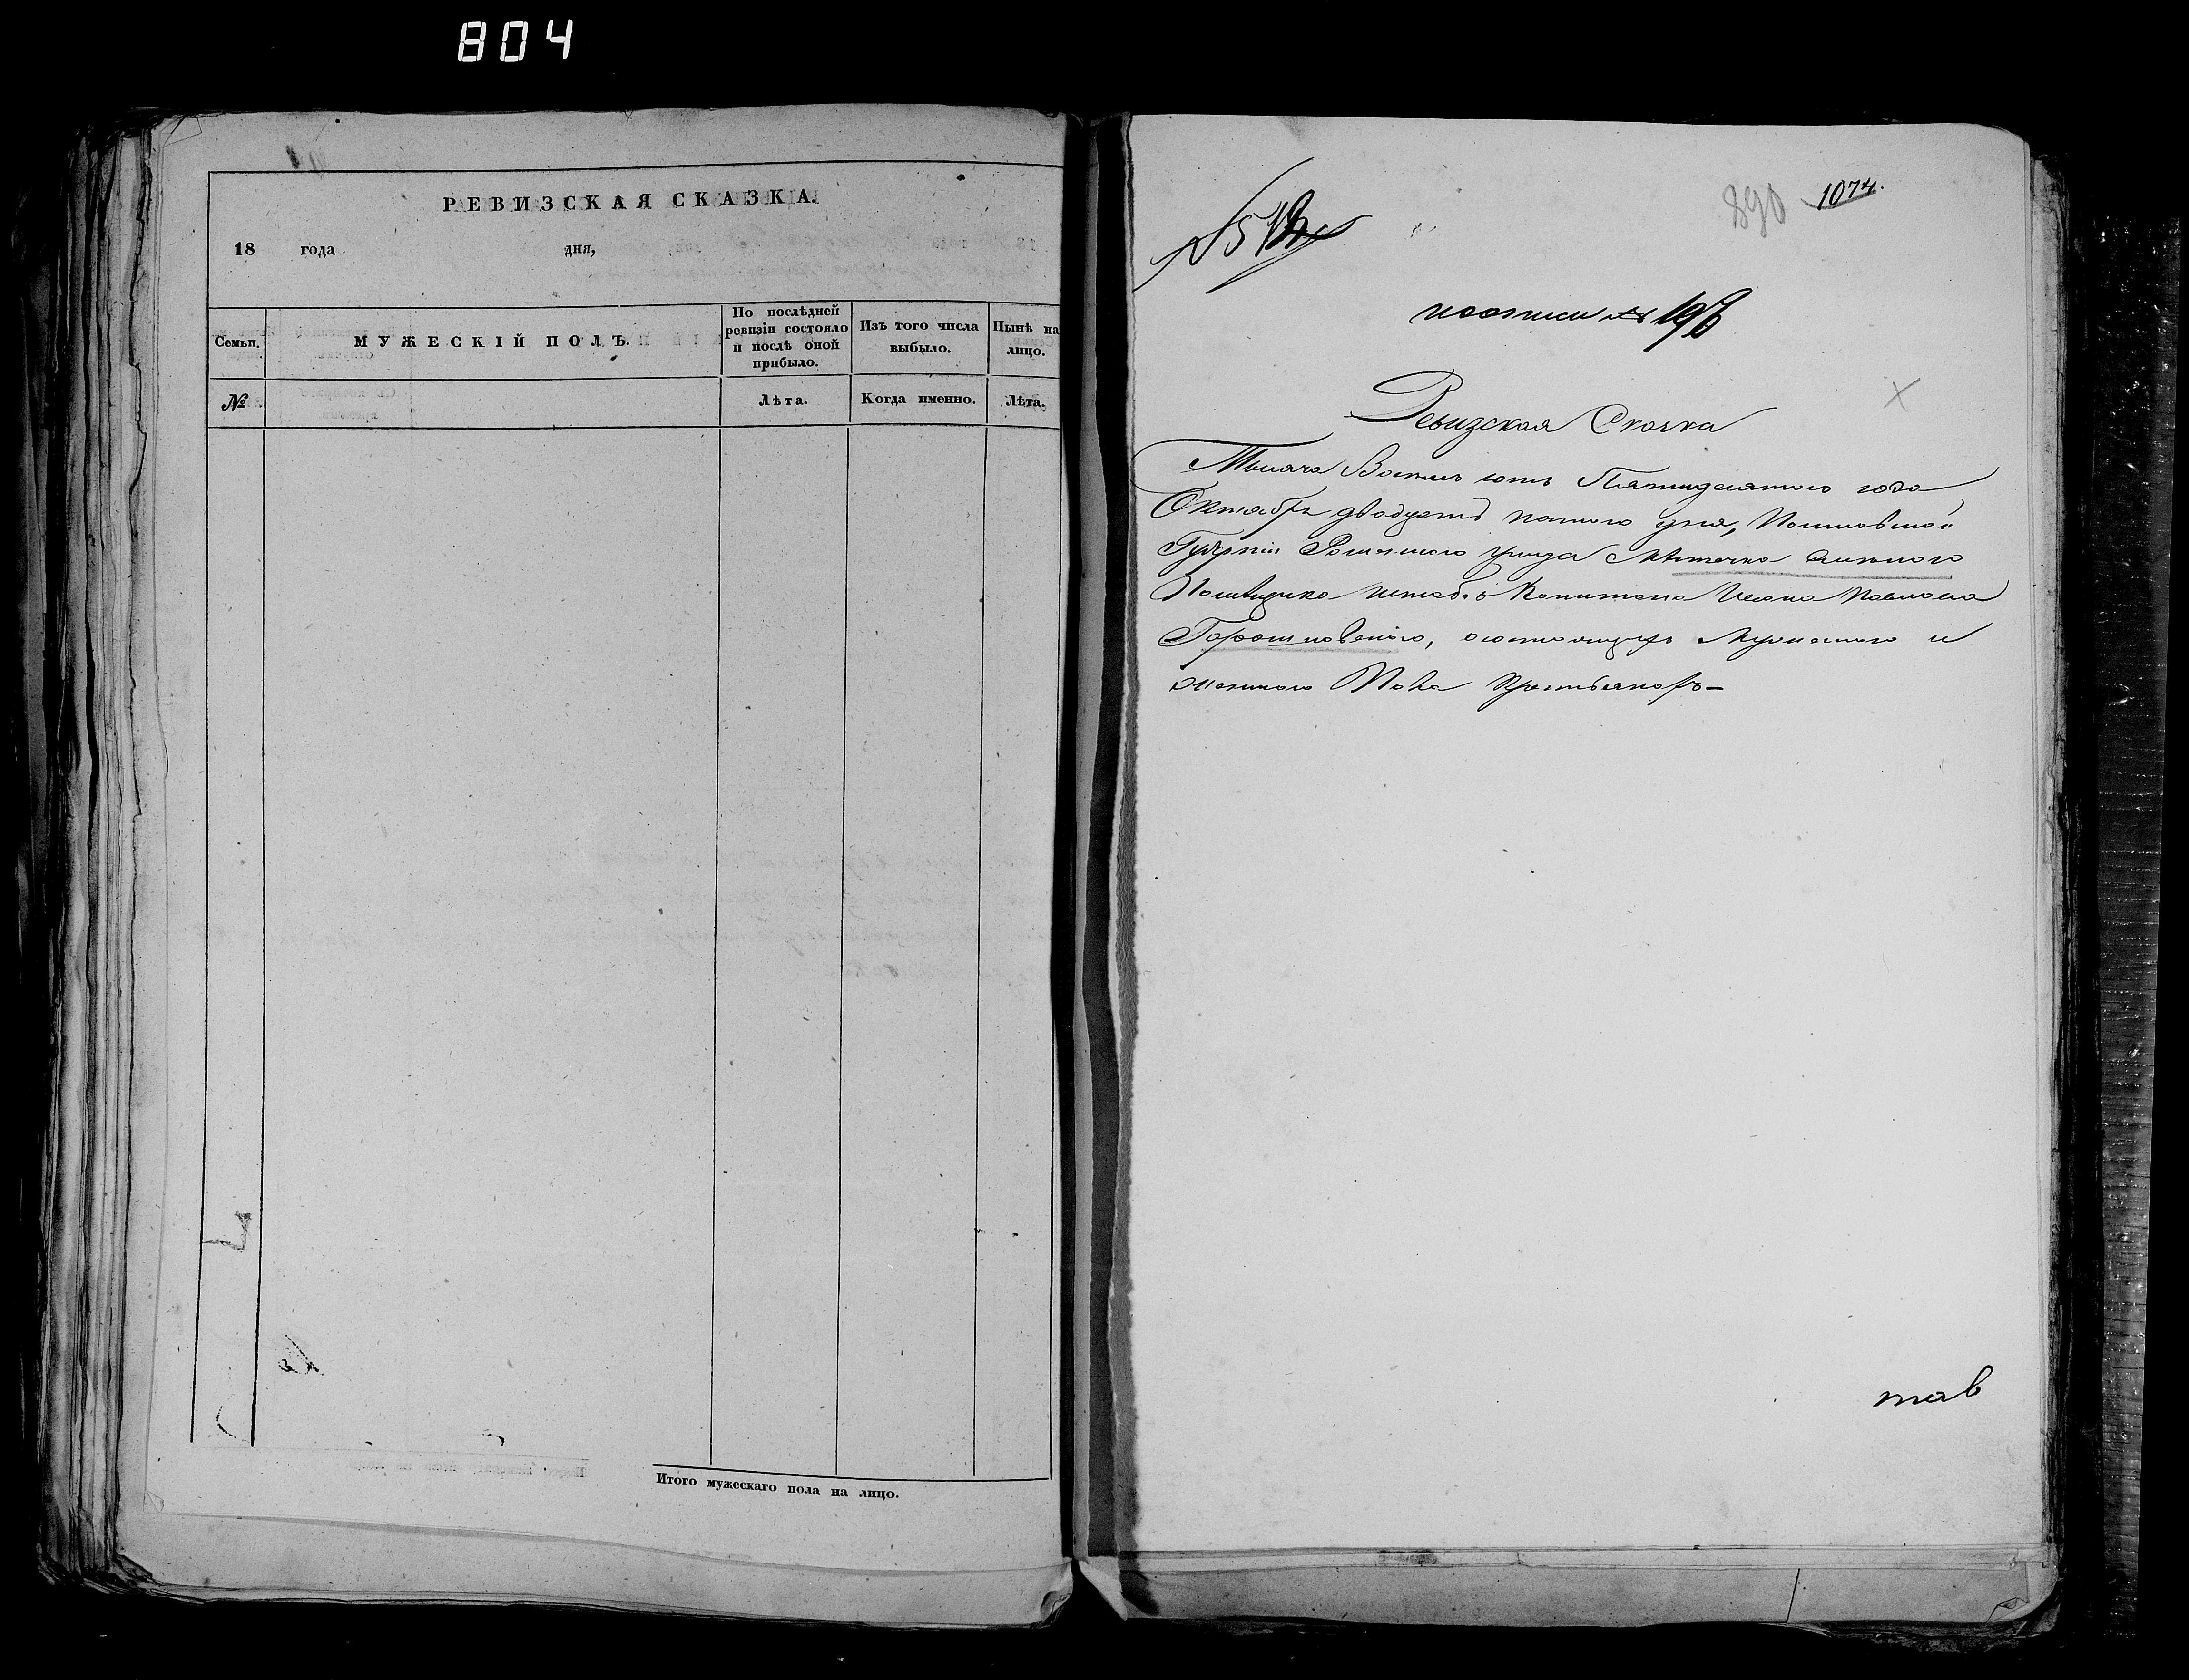 804
РЕВИЗСКАЯ СКАЗКА.
18 года дня,
Семьи. МУЖЕСКІЙ ПОЛЪ. По послѣдней ревизіи состояло и послѣ оной прибыло. Изъ того числа выбыло. Нынѣ на лицо.
№ Лѣта. Когда именно. Лѣта.
Итого мужескаго пола на лицо.
890 1074.
по описи № 196
Ревизская Сказка
Тысяча Восемь сотъ Пятидесятого года
Октября двадцать пятого дня, Полтавской
Губерніи Роменскаго уезда Местечка
Помещика штабсъ Капитана Ивана Павлова
о состоящихъ Мужеского и
женского Пола Крестьянахъ